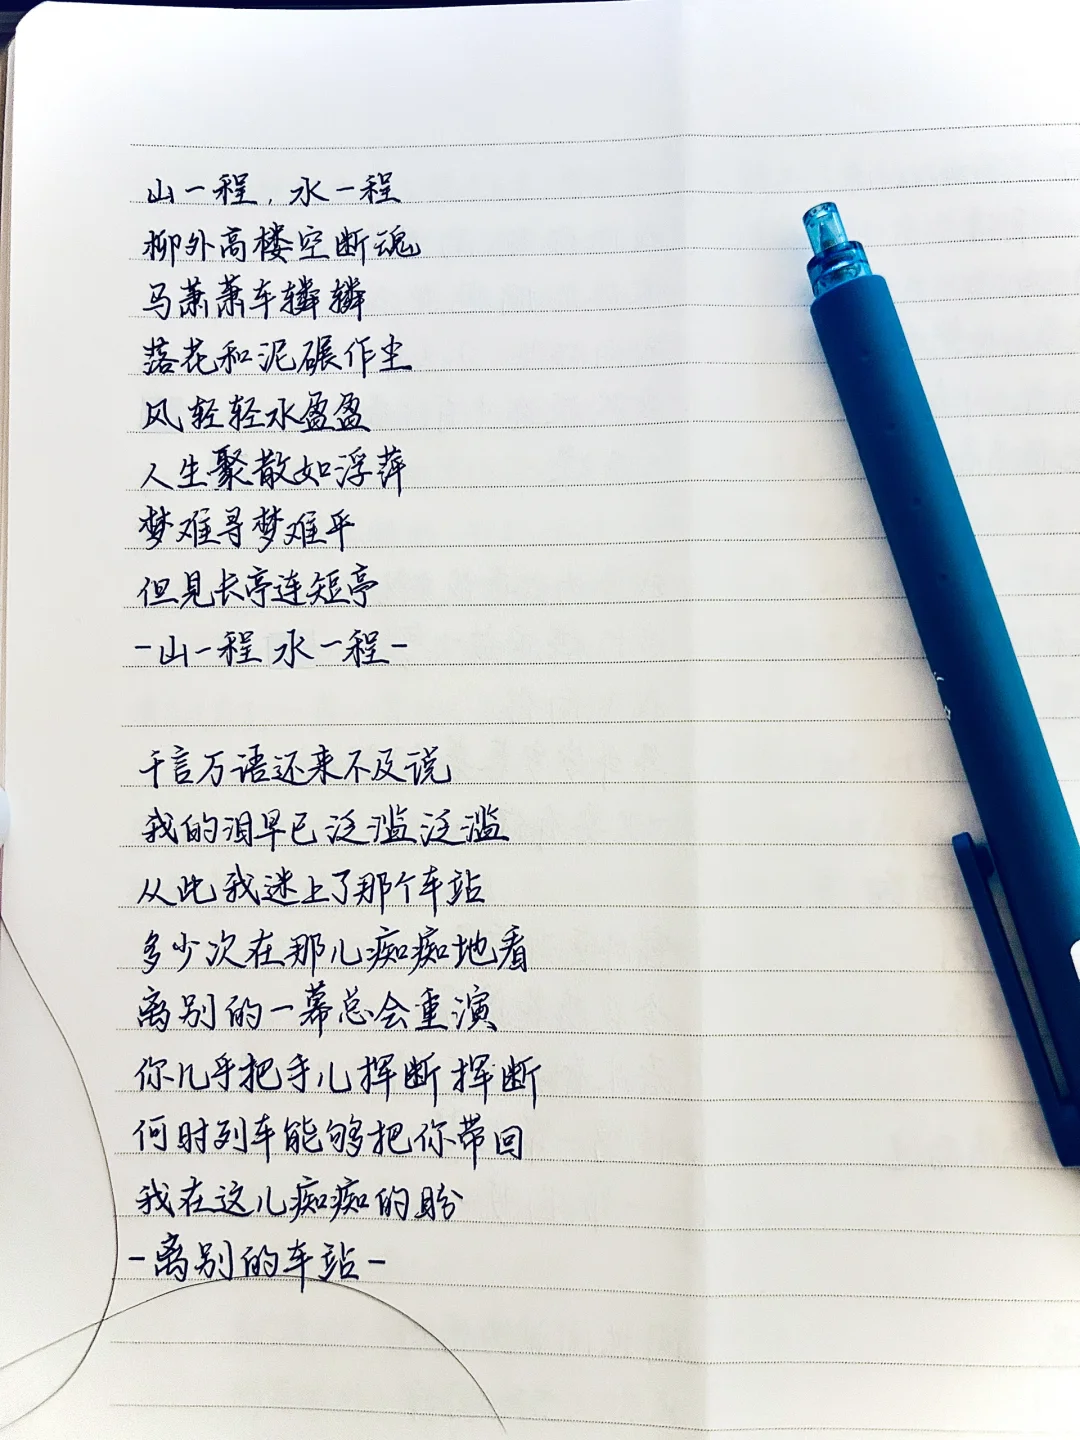 山一程，水一程
柳外高楼空断魂
马萧萧车辚辚
落花和泥碾作尘
风轻轻水盈盈
人生聚散如浮萍
梦难寻梦难平
但見长亭连短亭
-山一程 水一程-
千言万语还来不及说
我的泪早已泛滥泛滥
从此我迷上了那个车站
多少次在那儿痴痴地看
离别的一幕总会重演
你几乎把手儿挥断挥断
何时列车能够把你带回
我在这儿痴痴的盼
-离别的车站-